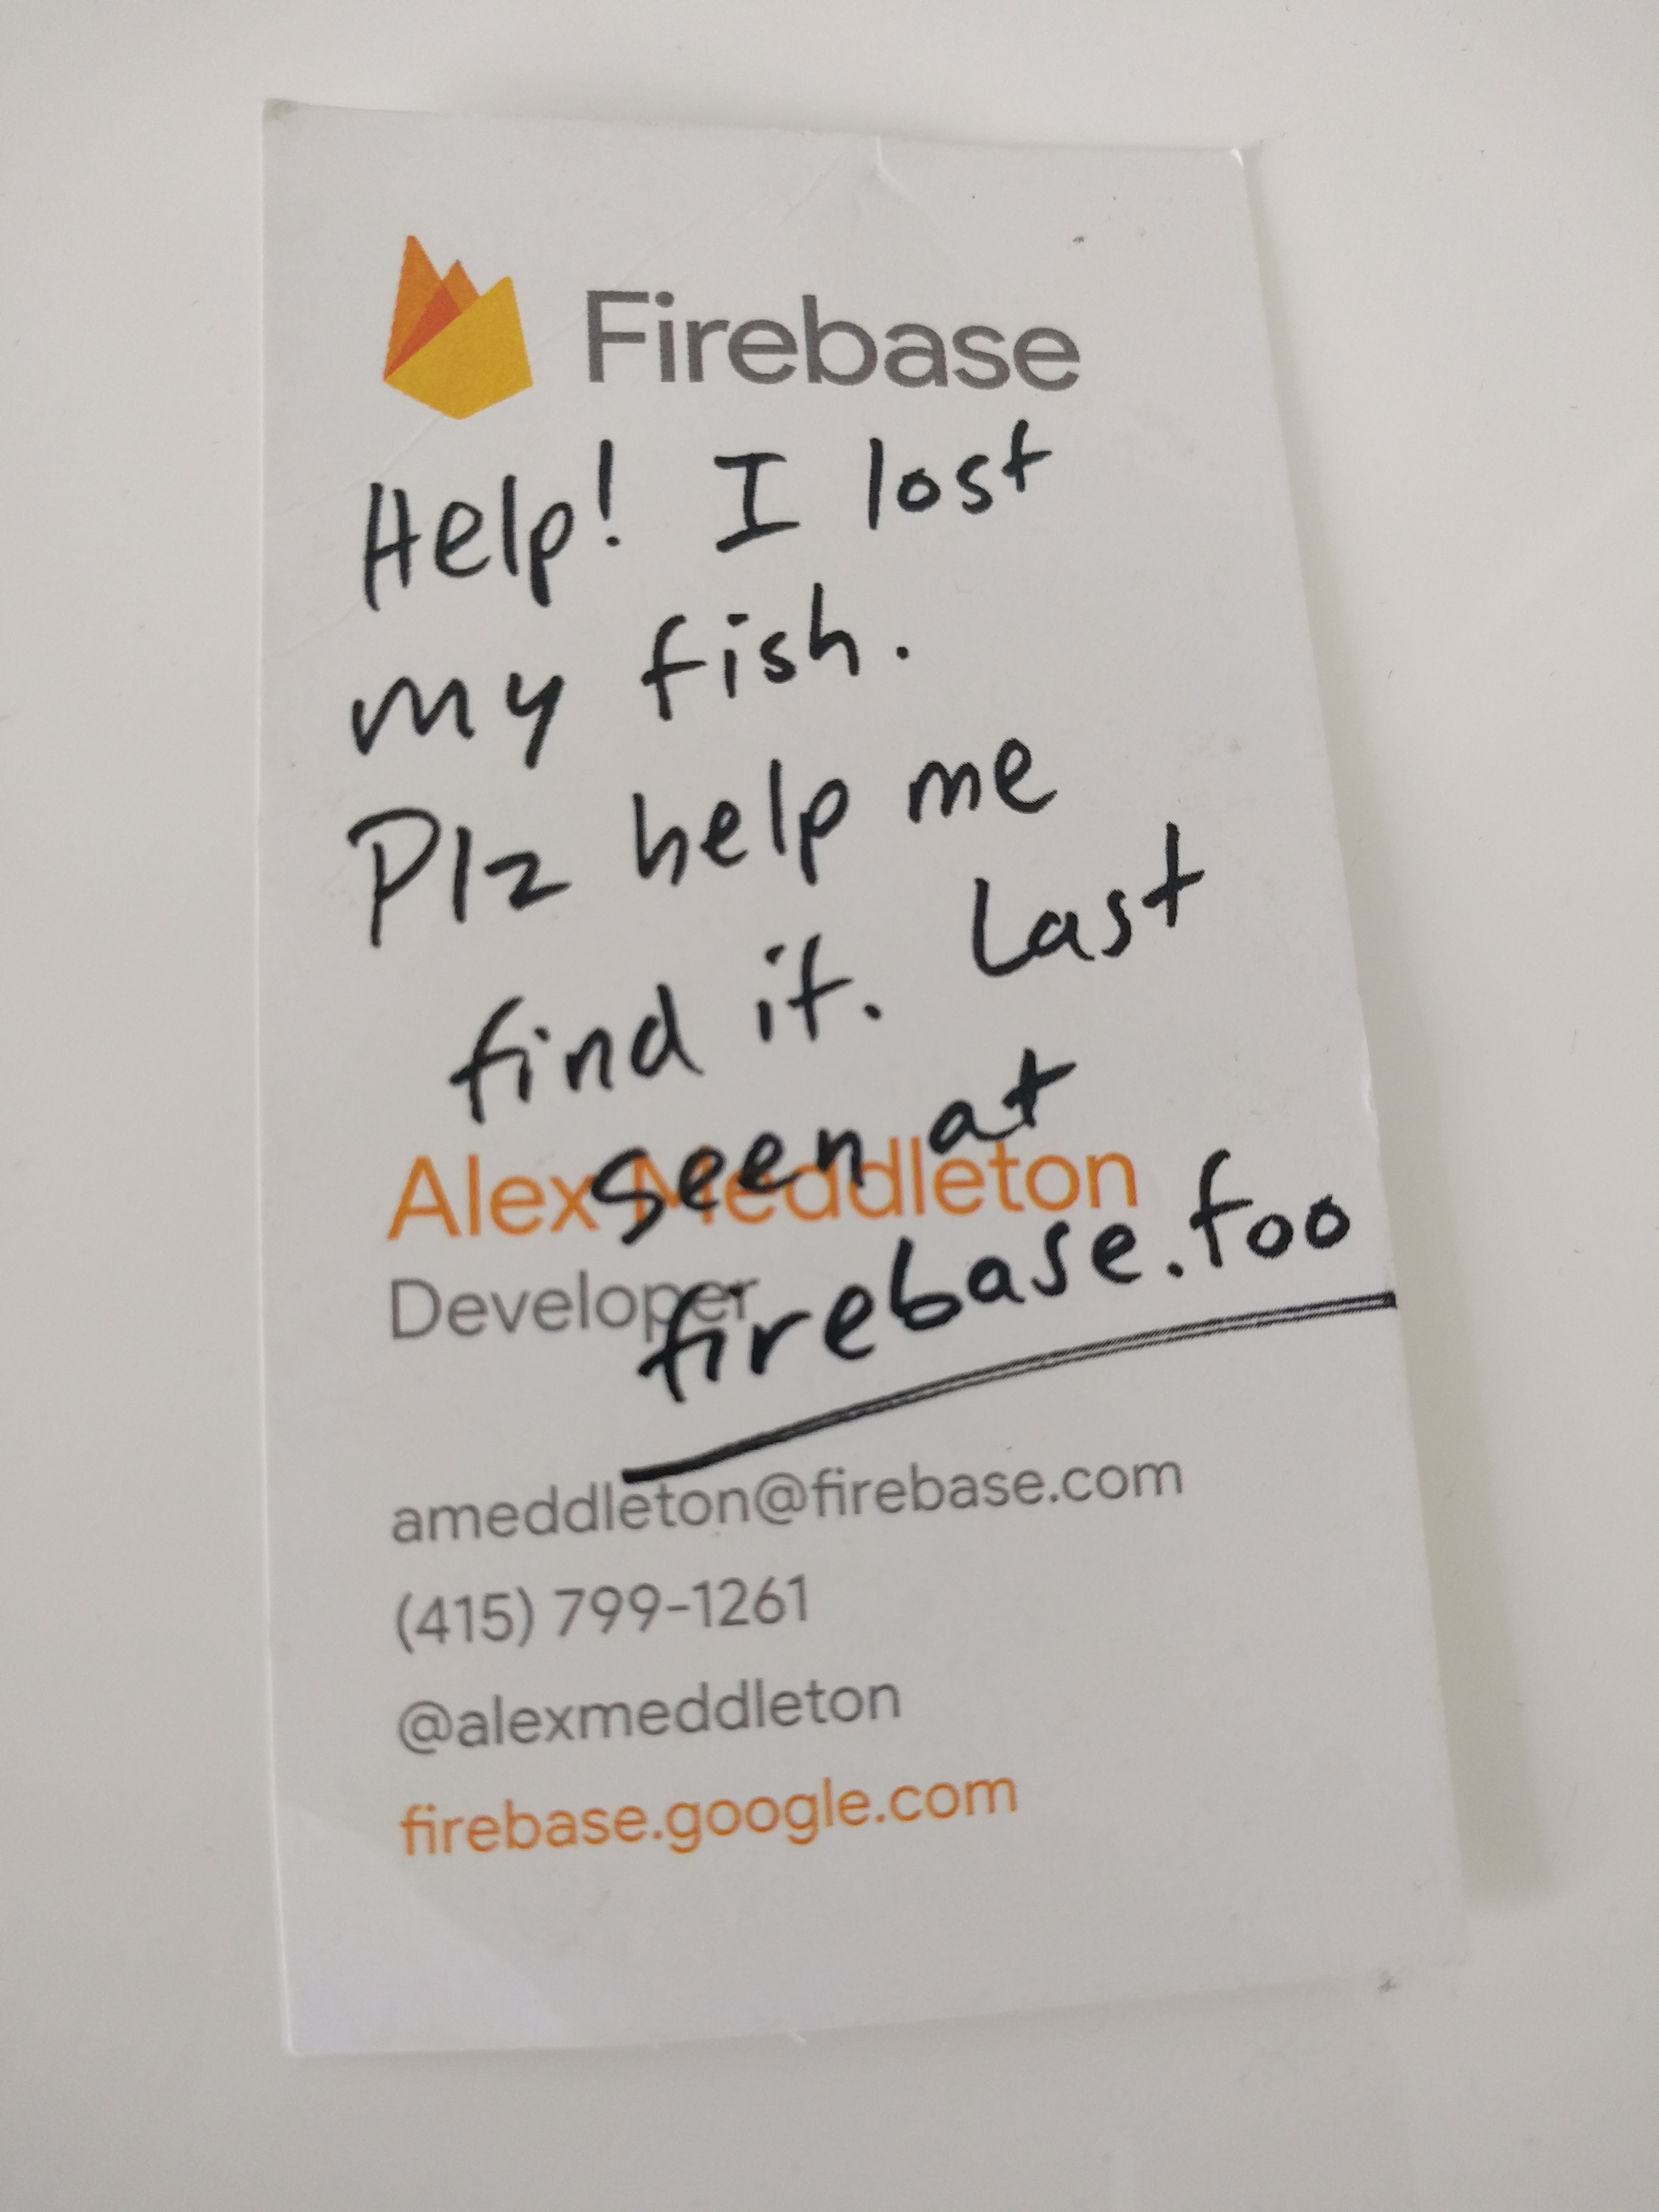 Firebase
Help! I lost
my fish.
Plz help me
find it. Last
seen at
Alex Meddleton
firebase.foo
Developer
ameddleton@firebase.com
(415) 799-1261
@alexmeddleton
firebase.google.com